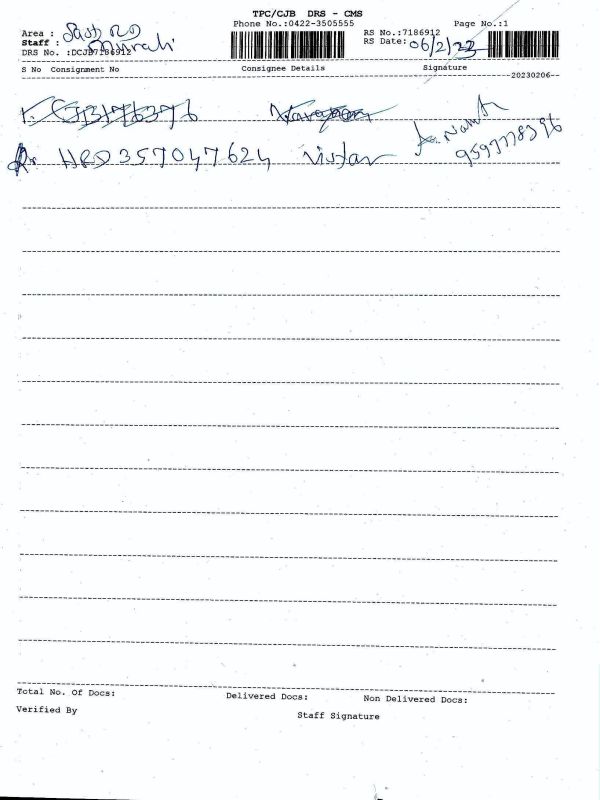 TPC/CJB DRS - CMS
Phone No.:0422-3505555 Page No.:1
Area :
Staff : Murali
DRS No. :DCJB7186912
RS No.:7186912
RS Date: 06/2/23
S No Consignment No Consignee Details Signature
20230206
HRD357047624
9597778396
Total No. Of Docs: Delivered Docs: Non Delivered Docs:
Verified By Staff Signature